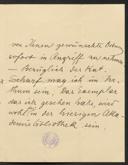 von Ihnen gewünschte
sofort in Angriff zu nehmen
Bezüglich der Kat.
Scharf mag ich im Irr-
thum sein. Das Exemplar
das ich gesehen habe, wird
wohl in der hiesigen Aka-
demie Bibliothek sein.